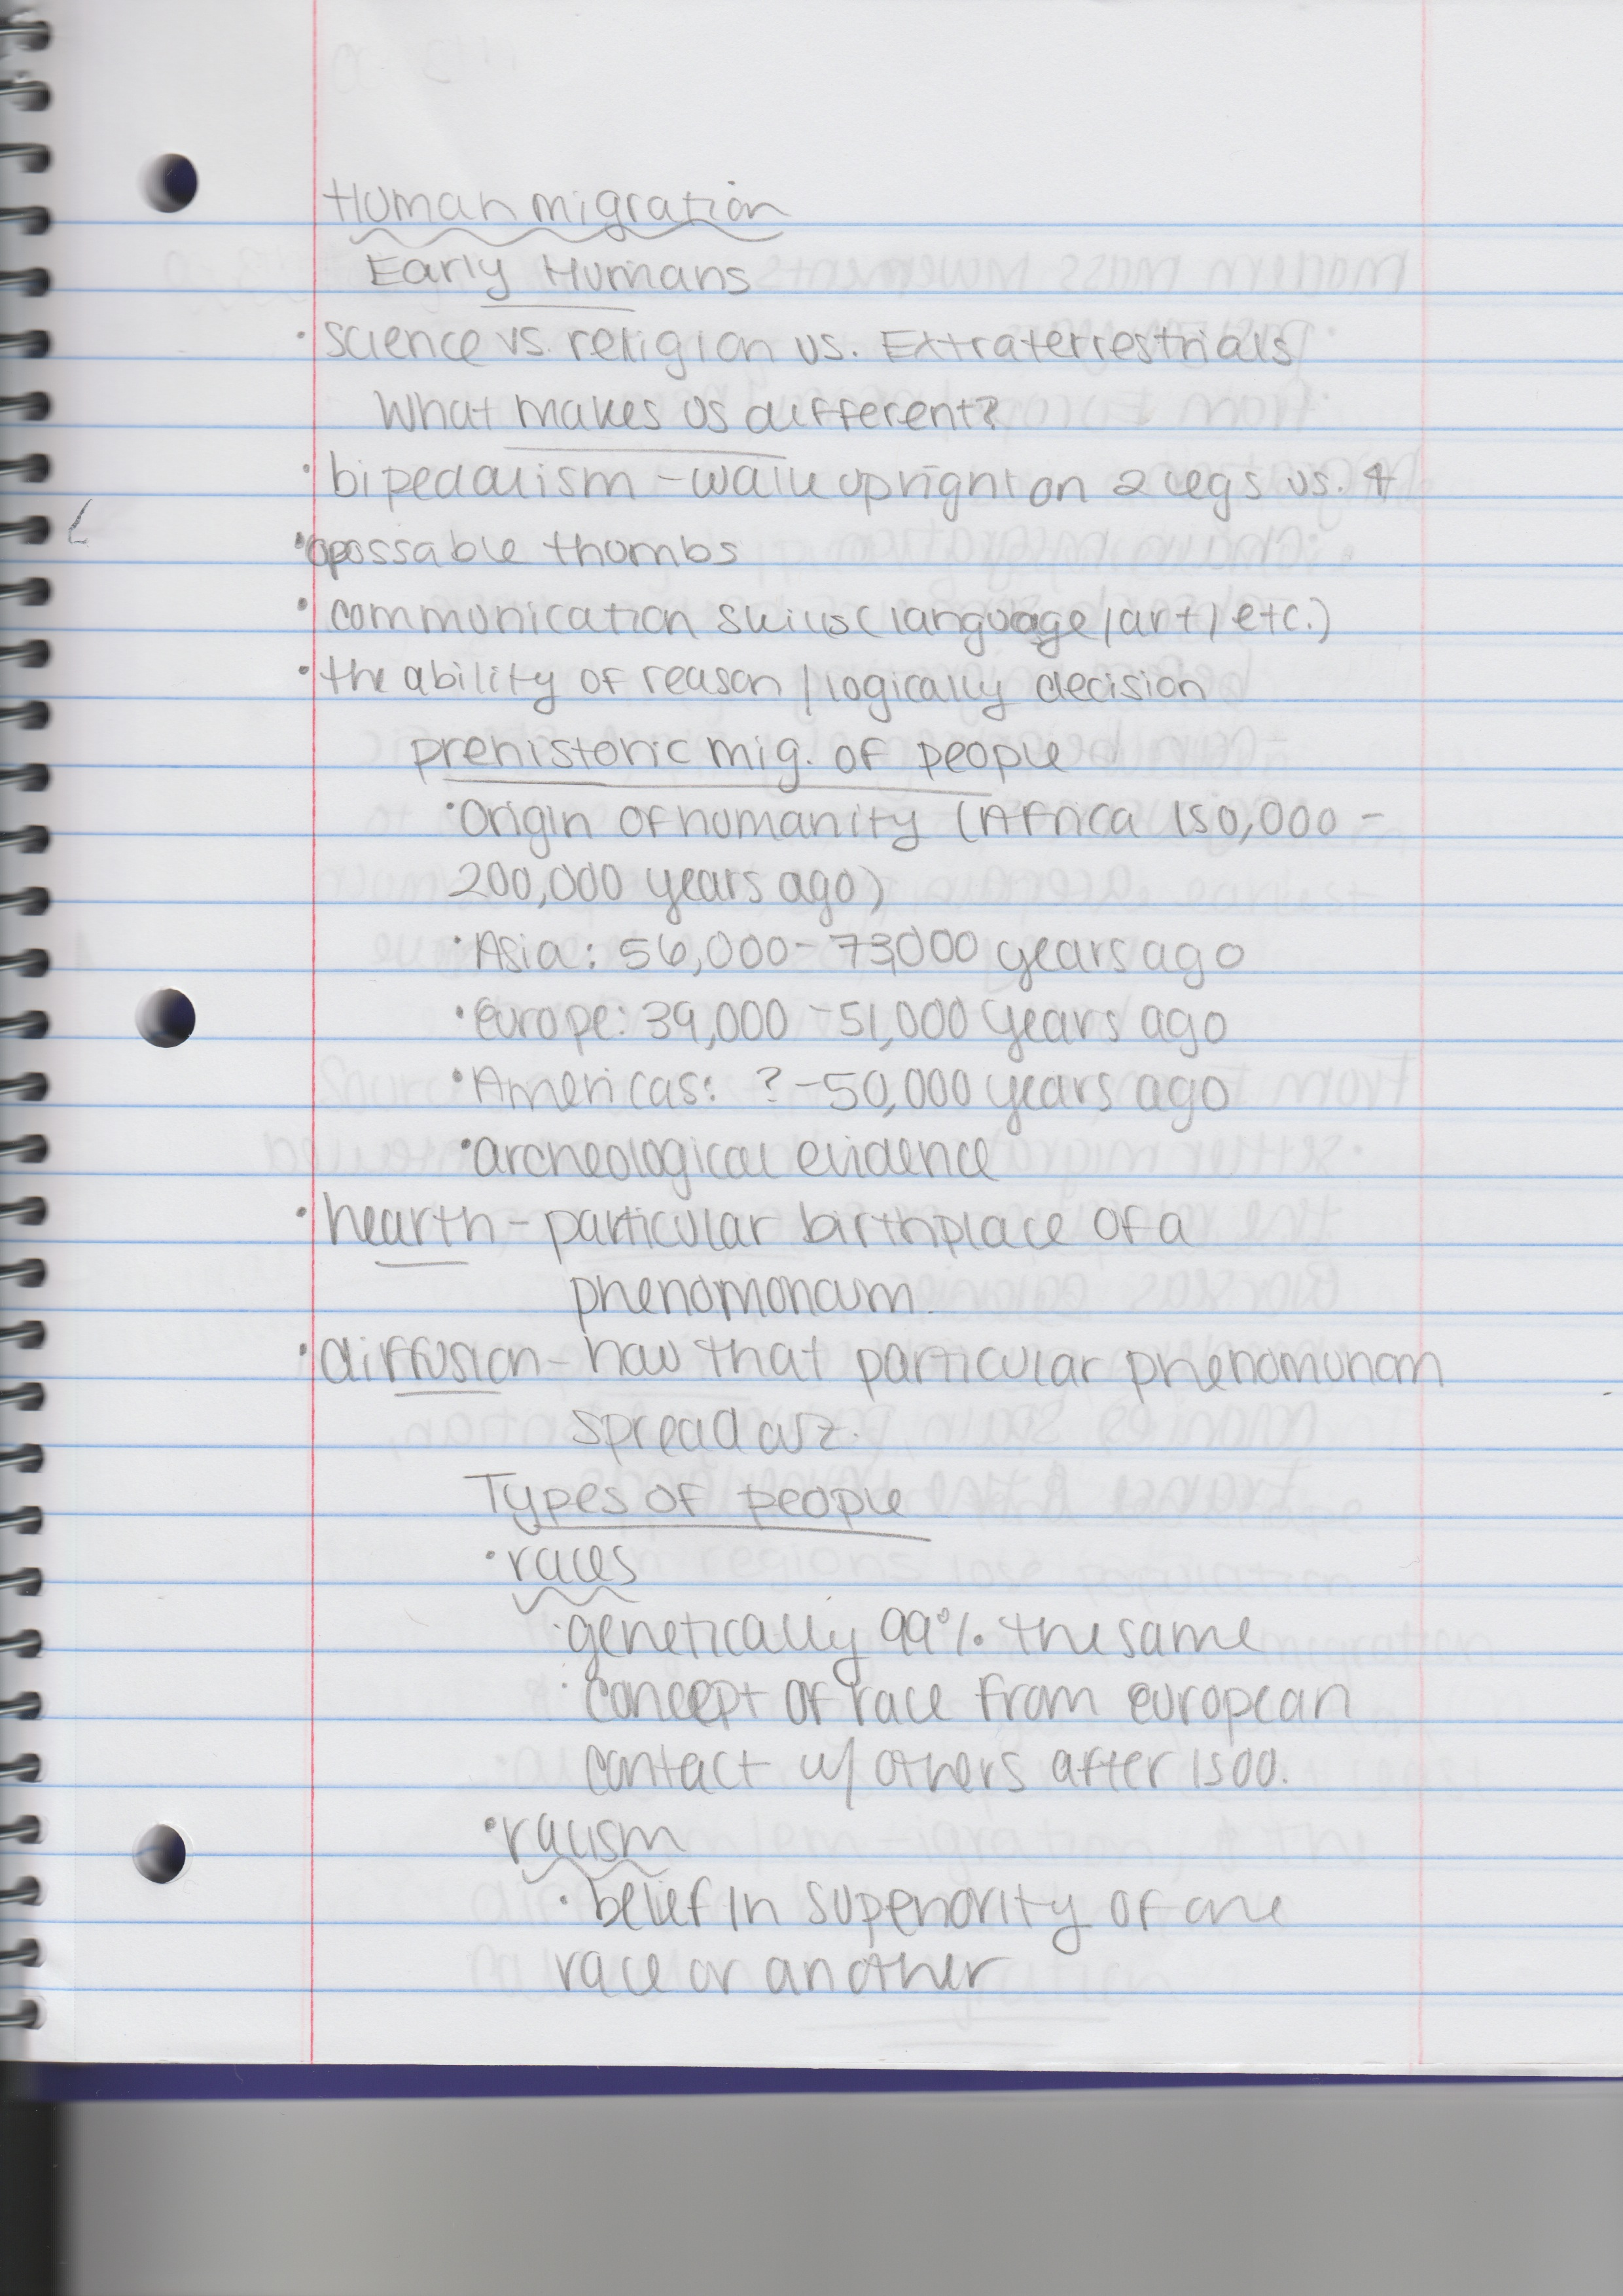 Human migration
Early Humans
• science vs. religion vs. Extraterrestrials
What makes us different?
• bipedalism - walk upright on 2 legs vs. 4
• opossable thumbs
• communication skills (language/art/etc.)
• the ability of reason / logically decision
prehistoric mig. of people
• Origin of humanity (Africa 150,000 -
200,000 years ago)
• Asia: 56,000 - 73,000 years ago
• Europe: 39,000 - 51,000 years ago
• Americas: ? - 50,000 years ago
• archeological evidence
• hearth - particular birthplace of a
phenomonom.
• diffusion - how that particular phenomunom
spread
Types of people
• races
• genetically 99% the same
• concept of race from european
contact w/ others after 1500.
• racism
• belief in superiority of one
race or another